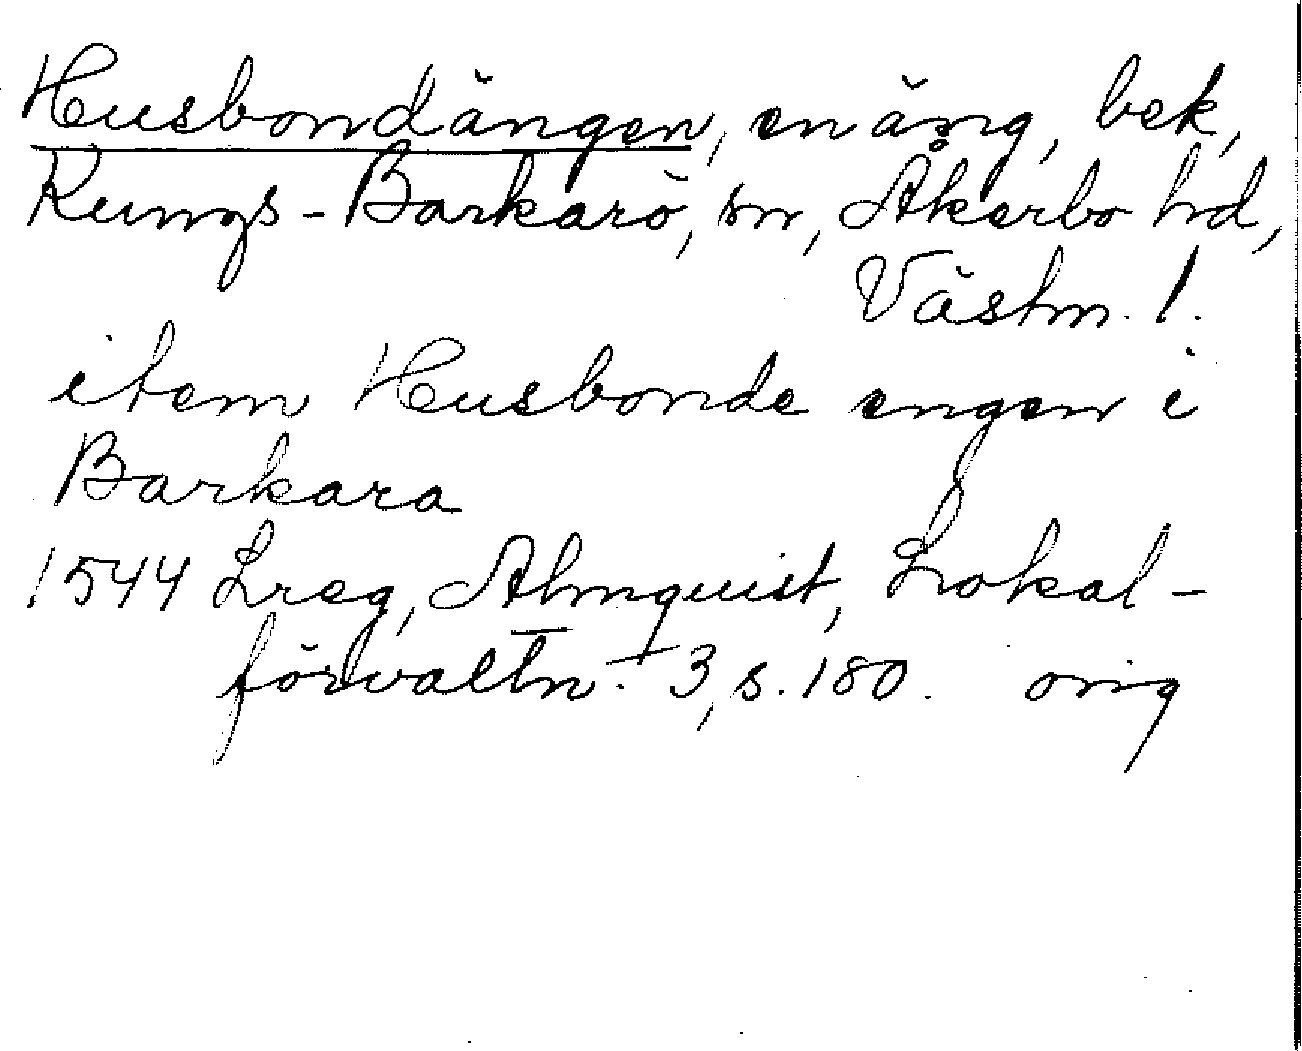 Husbondängen, en äng, bek,
Kungs-Barkarö, sn, Åkerbo hd,
Västm. l.
item Husbonde engen i
Barkara
1544 Lreg, Almquist, Lokal-
förvaltn. 3, s. 180. orig